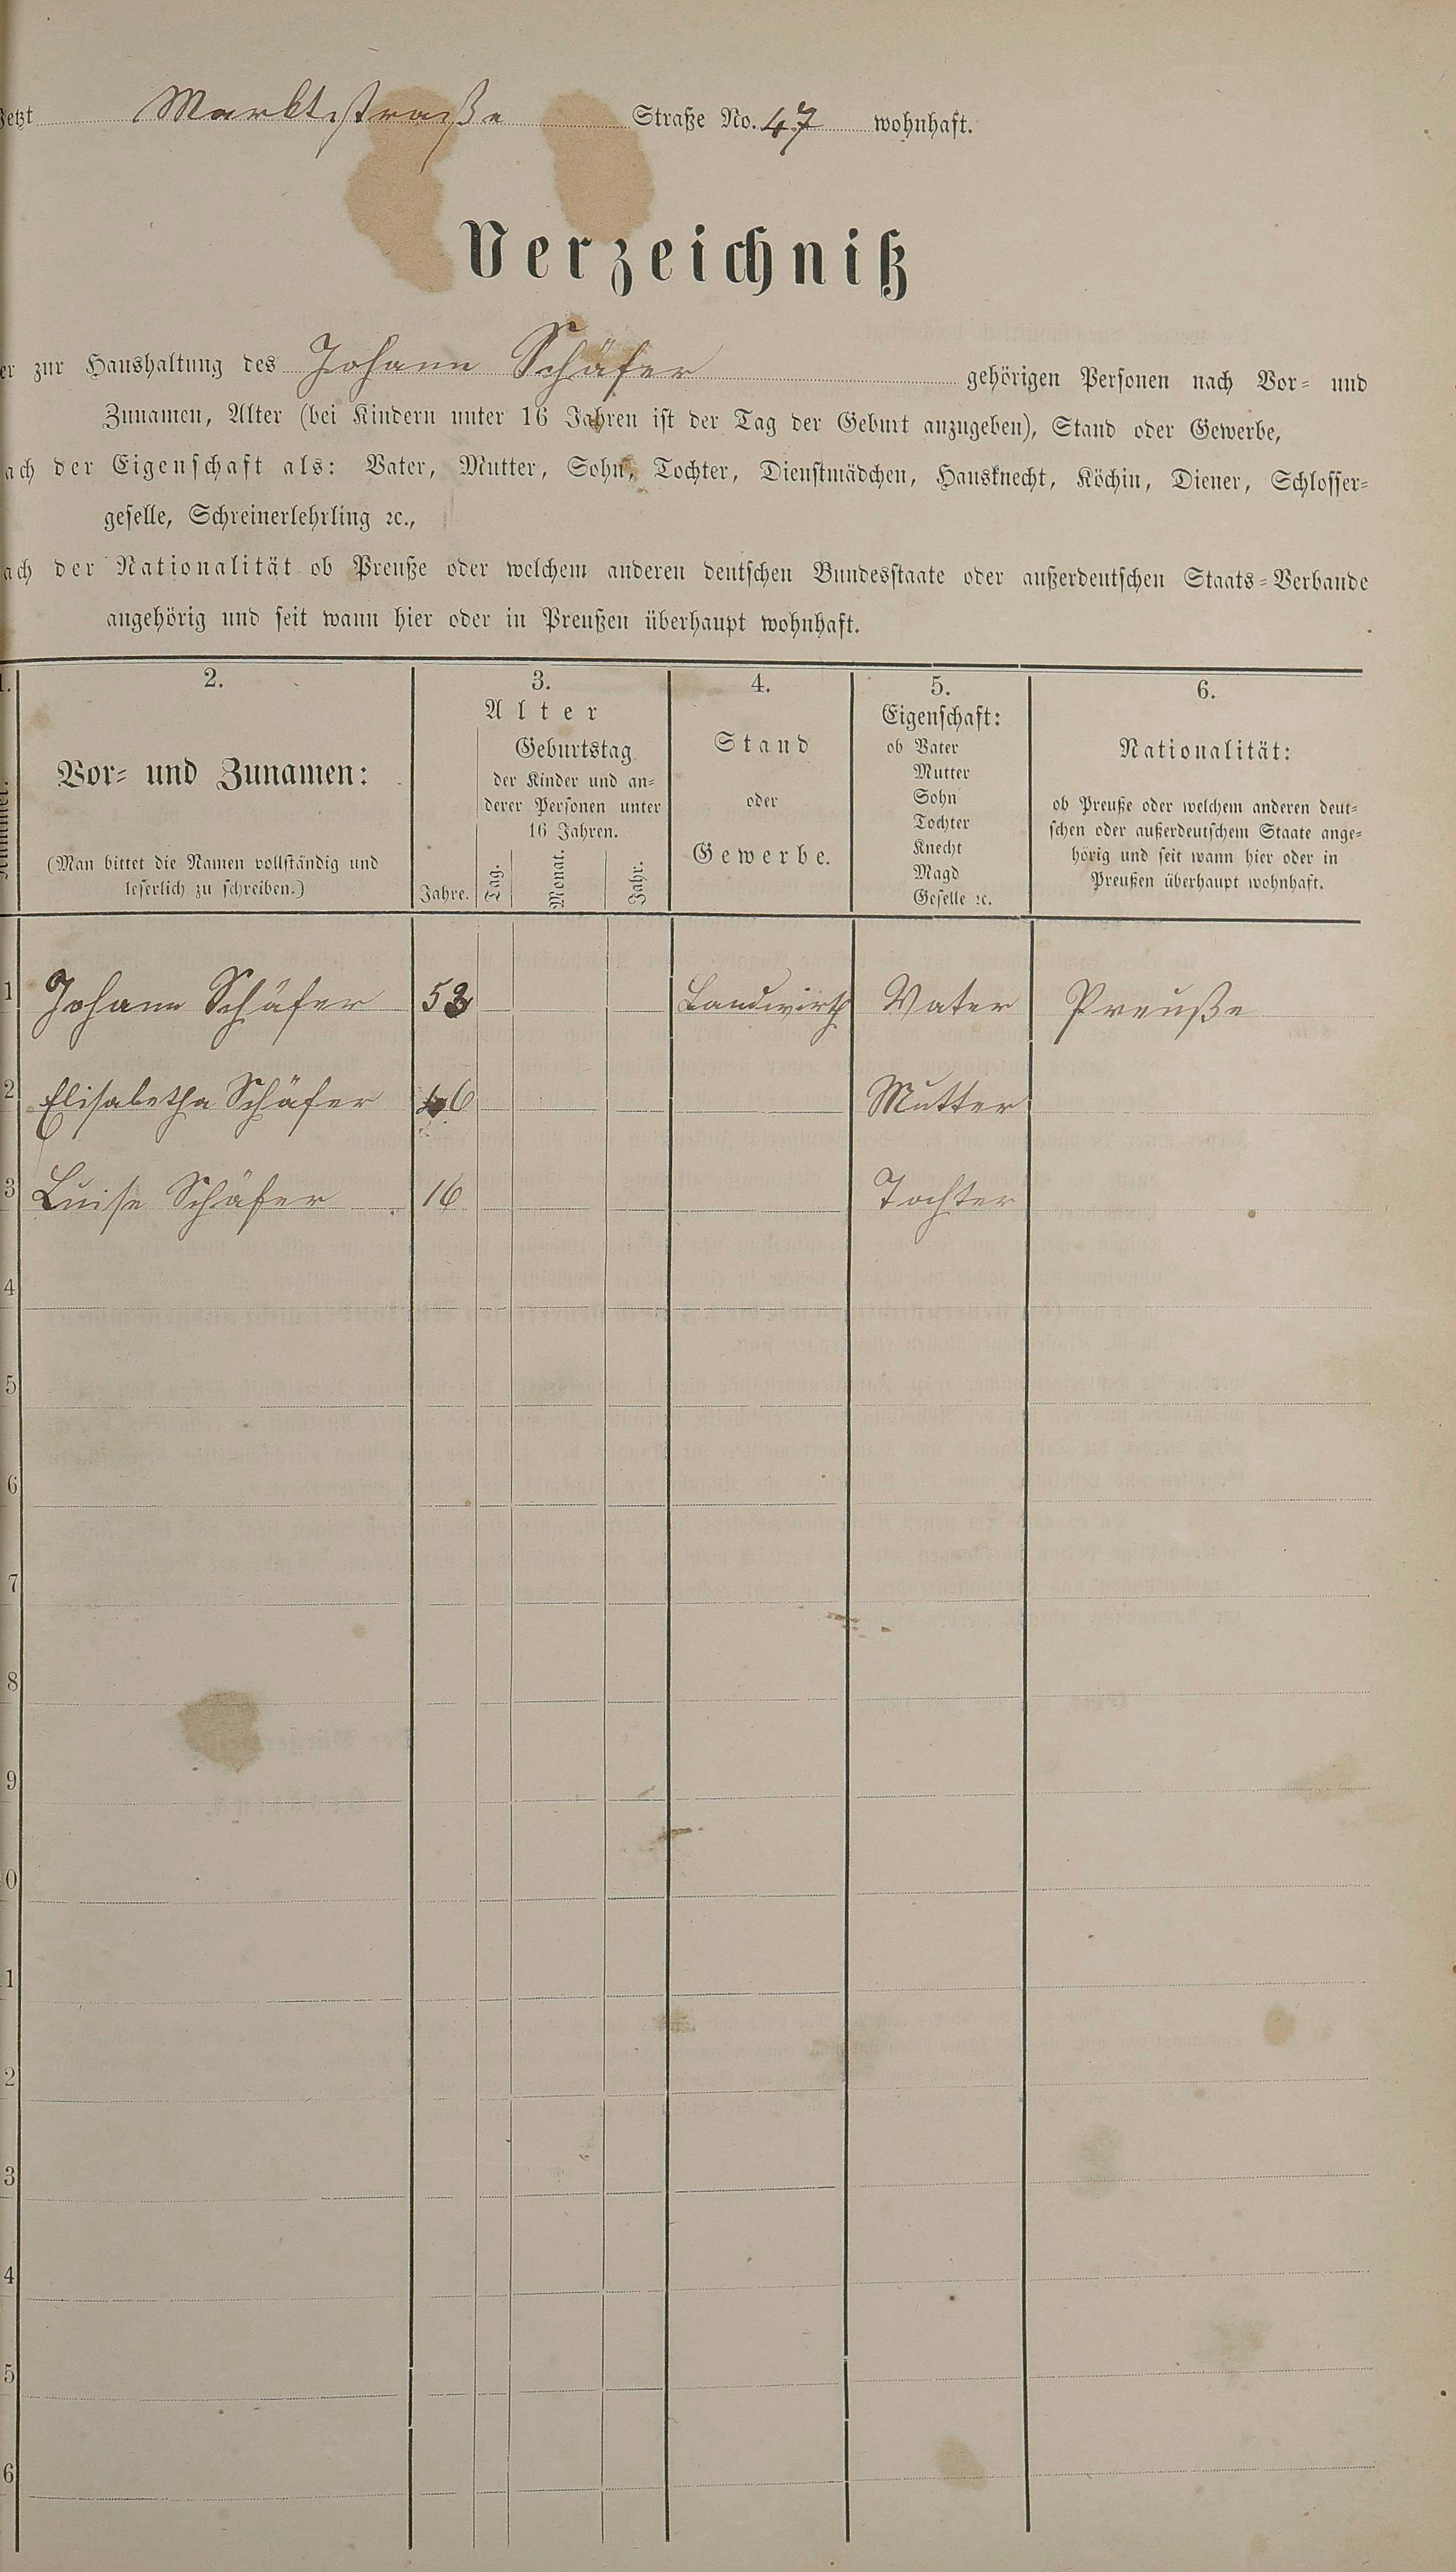 Jetzt Marktstraße Straße No. 47 wohnhaft.
Verzeichniß
er zur Haushaltung des Johann Schäfer gehörigen Personen nach Vor- und
Zunamen, Alter (bei Kindern unter 16 Jahren ist der Tag der Geburt anzugeben), Stand oder Gewerbe,
ach der Eigenschaft als: Vater, Mutter, Sohn, Tochter, Dienstmädchen, Hausknecht, Köchin, Diener, Schlosser-
geselle, Schreinerlehrling ꝛc.,
ach der Nationalität ob Preuße oder welchem anderen deutschen Bundesstaate oder außerdeutschen Staats-Verbande
angehörig und seit wann hier oder in Preußen überhaupt wohnhaft.
1. 2. 3. 4. 5. 6.
Vor- und Zunamen:
(Man bittet die Namen vollständig und
leserlich zu schreiben.)
Alter
Jahre.
Geburtstag
der Kinder und an-
derer Personen unter
16 Jahren.
Tag. Monat. Jahr.
Stand
oder
Gewerbe.
Eigenschaft:
ob Vater
Mutter
Sohn
Tochter
Knecht
Magd
Geselle ꝛc.
Nationalität:
ob Preuße oder welchem anderen deut-
schen oder außerdeutschem Staate ange-
hörig und seit wann hier oder in
Preußen überhaupt wohnhaft.
1 Johann Schäfer 53 Landwirth Vater Preuße
2 Elisabetha Schäfer Mutter
3 Luise Schäfer 16 Tochter
4
5
6
7
8
9
0
1
2
3
4
5
6